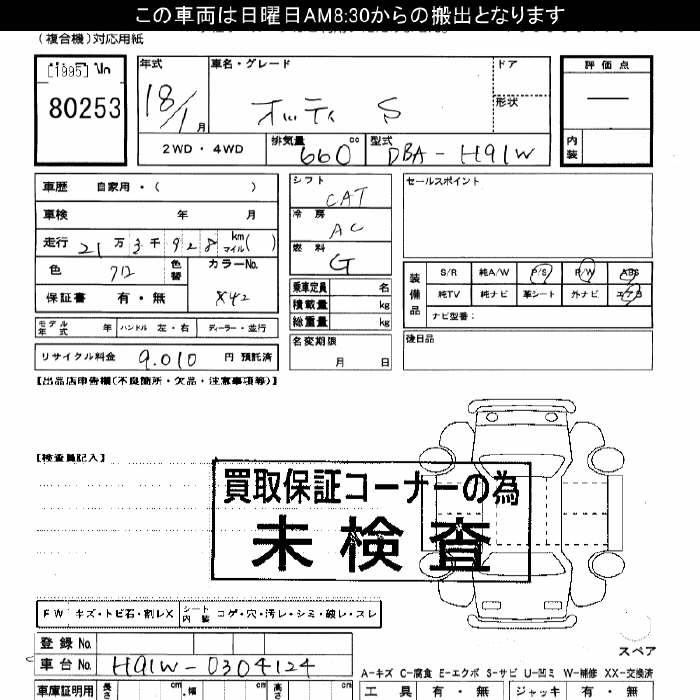 この車両は日曜日AM8:30からの搬出となります
(複合機)対応用紙
[1995]
80253
年式
18/1月
車名・グレード
オッティ S
ドア
形状
評価点
内装
2WD・4WD
排気量 660 cc
型式 DBA-H91W
車歴 自家用・( )
車検 年 月
走行 21万3千928 km マイル( )
色 色替 カラーNo.
X42
保証書 有・無
シフト CAT
冷房 AC
燃料 G
乗車定員 名
積載量 kg
総重量 kg
名変期限
月 日
セールスポイント
装備品
S/R 純A/W P/S P/W ABS
純TV 純ナビ 革シート 外ナビ エアB
ナビ型番:
後日品
モデル年式 年 ハンドル 左・右 ディーラー・並行
リサイクル料金 9,010 円 預託済
【出品店申告欄(不良箇所・欠品・注意事項等)】
【検査員記入】
買取保証コーナーの為
未検査
FW キズ・トビ石・割レX シート内装 コゲ・穴・汚レ・シミ・破レ・スレ
登録No.
車台No. H91W-0304124
スペア
A-キズ C-腐食 E-エクボ S-サビ U-凹ミ W-補修 XX-交換済
車庫証明用 長さ cm 幅 cm 高さ cm
工具 有・無 ジャッキ 有・無